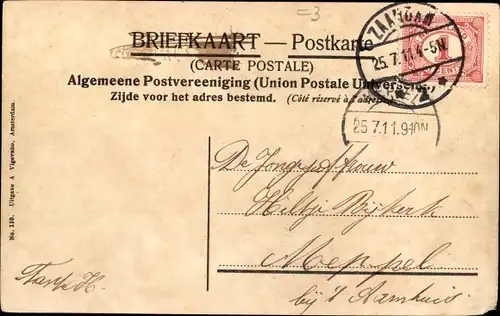 =3
BRIEFKAART — Postkarte
(CARTE POSTALE)
Algemeene Postvereeniging (Union Postale Universelle)
Zijde voor het adres bestemd. (Côté réservé à l'adresse)
ZAANDAM
25.7.11.4-5N.
2
1
CENT
25 7.11.9-10N
De Jongejufvrouw
Hiltje Bijkerk
Meppel
bij 't
Tante H.
No. 110. Uitgave A Vigevano, Amsterdam.